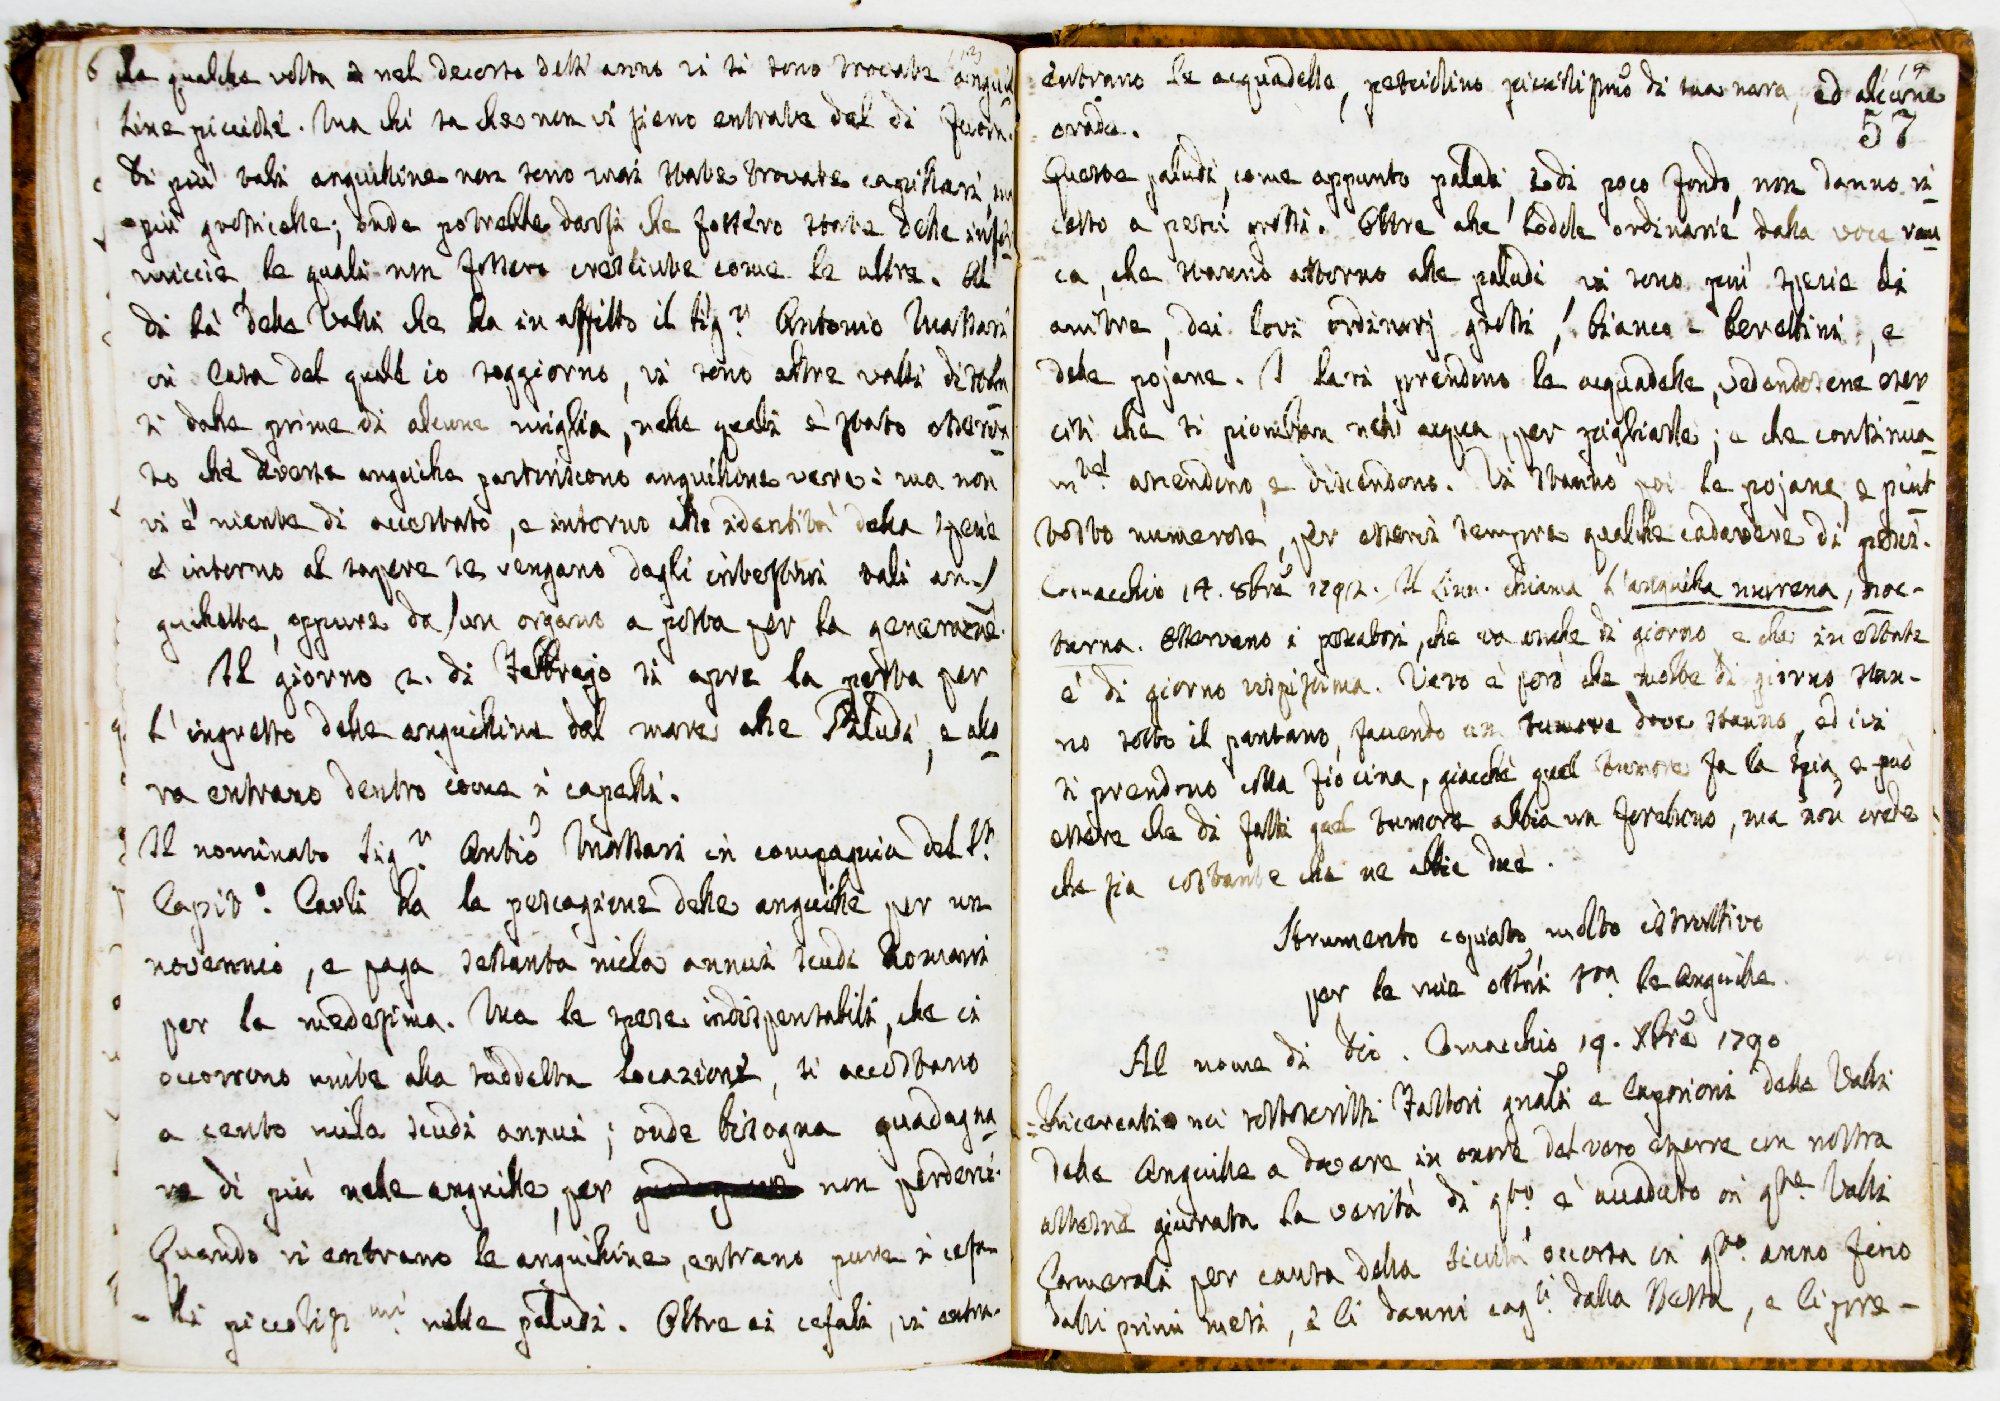 che qualche volta nel decorso dell' anno vi si sono trovate anguil
line picciole. Ma chi sa che non vi sieno entrate dal di fuori.
Di più tali anguilline non sono mai state trovate capillari, ma
più grossicelle; onde potrebbe darsi che fossero state delle
miccie, le quali non fossero cresciute come le altre. Al
di là delle Valli che ha in affitto il Sig.r Antonio Massari
in Casa del quale io soggiorno, vi sono altre valli distan
ti dalle prime di alcune miglia, nelle quali è stato osserva
to che diverse anguille partoriscono anguilline vere: ma non
vi è niente di accertato, e intorno alla identità della spezie
e intorno al sapere se vengano dagli intestini tali an-
guillette, oppure da un organo a posta per la generazne.
Il giorno 2. di Febbrajo si apre la porta per
l' ingresso delle anguilline dal mare alle Paludi, e allo
ra entrano dentro come i capelli.
Il nominato Sig.r Antio Massari in compagnia del S.r
Capit.o Carli ha la pescagione delle anguille per un
novennio, e paga sessanta mila annui scudi Romani
per la medesima. Ma le spese indispensabili, che ci
occorrono unite alla suddetta locazione, si accostano
a cento mila scudi annui; onde bisogna guadagna
re di più nelle anguille, per non perderci.
Quando vi entrano le anguilline, entrano pure i cefa-
li piccolissmi nelle paludi. Oltre ai cefali, vi entra-
entrano le acquadelle, pesciolino picciolissimo di sua nara, ed alcune
orade.
57
Queste paludi, come appunto paludi, e di poco fondo, non danno ri
cetto a pesci grossi. Oltre alle lodole ordinarie dalla voce rau
ca, che stanno attorno alle paludi vi sono più spezie di
anitre, dei lari ordinarj grossi, bianco e berettini, e
delle pojane. I lari prendono le acquadelle, vedendosene
che si piombano nell' acqua, per pigliarle; e che continua
mte ascendono, e discendono. Vi stanno poi le pojane, e piut
tosto numerose, per esserci sempre qualche cadavere di pesci.
Comacchio 14. 8bre 1792. Il Linn. chiama l' anguilla murena, noc-
turna. Osservano i pescatori, che va anche di giorno, e che in estate
è di giorno vispissima. Vero è però che molte di giorno stan-
no sotto il pantano, facendo un tumore dove stanno, ed ivi
si prendono colla fiocina, giacchè quel tumore fa la spia, e può
essere che di fatti quel tumore abbia un forellino, ma non crede
che sia costante che ne abbia due.
Strumento copiato molto istruttivo
per le mie ossni sra le Anguille.
Al nome di Dio. Comacchio 19. Xbre 1790
Ricercati noi sottoscritti Fattori gnali e Caporioni delle Valli
delle Anguille a dovere in onore del vero esporre con nostra
attestne giurata la verità di qto è accaduto in qste Valli
Camerali per causa della siccità occorsa in qsto anno fino
dalli primi mesi, e li danni cagti dalla stessa, e li pre-